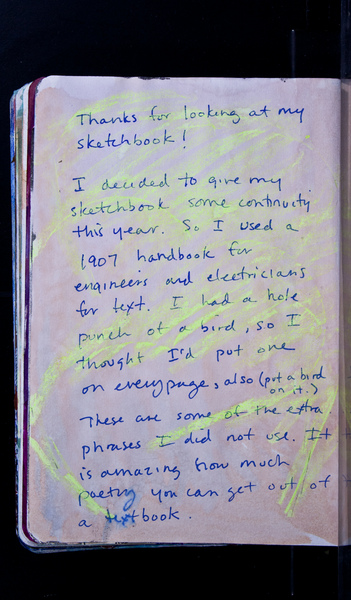 Thanks for looking at my
sketchbook!
I decided to give my
sketchbook some continuity
this year. So I used a
1907 handbook for
engineers and electricians
for text. I had a hole
punch of a bird, so I
thought I'd put one
on every page, also (put a bird
on it.)
These are some of the extra
phrases I did not use. It
is amazing how much
poetry you can get out of
a textbook.